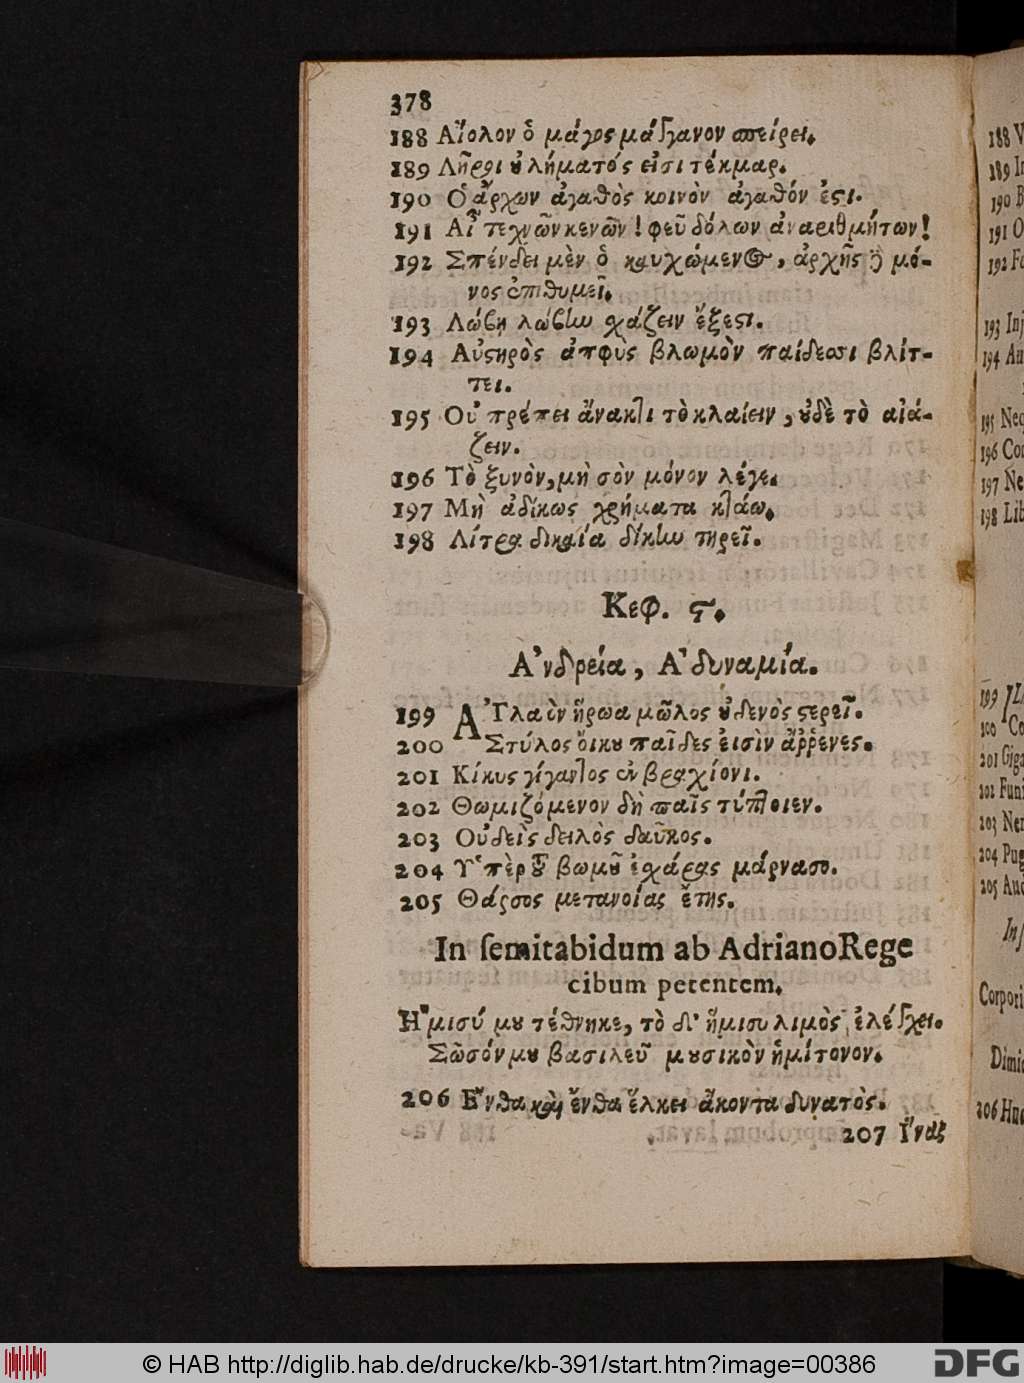 378
188 Αἴολον ὁ μάγος μάγγανον σπείρει.
189 Λῆροι ȣ̓ λήματός εἰσι τέκμαρ.
190 Ὁ ἄρχων ἀγαθὸς κοινὸν ἀγαθόν ἐϛι.
191 Αἲ τεχνῶν κενῶν! φεῦ δόλων ἀναριθμήτων!
192 Σπένδει μὲν ὁ καυχώμενος, ἀρχῆς ὃ μό-
νος ἐπιθυμεῖ.
193 Λώβη λώβίω χάζειν ἔξεϛι.
194 Αὐϛηρὸς ἀπφὺς βλωμὸν παίδεσσι βλίτ-
τει.
195 Οὐ πρέπει ἄνακτι τὸ κλαίειν, ȣ̓δὲ τὸ αἰά-
ζειν.
196 Τὸ ξυνὸν, μὴ σὸν μόνον λέγε.
197 Μὴ ἀδίκως χρήματα κτάω.
198 Λίτρα δικαία δίκἰω τηρεῖ.
Κεφ. ϛ.
Ἀνδρεία, Ἀδυναμία.
199 ἈΓλαὶν ἥρωα μῶλος ȣ̓δενὸς ϛερεῖ.
200 Στύλος ὄικȣ παῖδες ἐισὶν ἄῤῥενες.
201 Κίκυς γίγαντος ἐν βραχίονι.
202 Θωμιζόμενον δὴ παῖς τύπτοιεν.
203 Οὐδεὶς δειλὸς δαῦκος.
204 Ὑπὲρ τȣ͂ βωμȣ͂ ἐχάρας μάρνασο.
205 Θάρσος μετανοίας ἔτης.
In ſemitabidum ab Adriano Rege
cibum petentem.
Ἥμισύ μȣ τέθνηκε, τὸ δ' ἥμισυ λιμὸς ἐλέγχει.
Σῶσόν μȣ βασιλεῦ μȣσικὸν ἡμίτονον.
206 Ἔνθα καὶ ἔνθα ἕλκει ἄκοντα δυνατὸς.
207 Ἵνας
188 V
189 In
190 B
191 O
192 Fa
193 Inj
194 Au
195 Neq
196 Com
197 Ne
198 Lib
199
200 Co
201 Giga
202 Funi
203 Nem
204 Pug
205 Aud
Corpori
Dimid
206
© HAB http://diglib.hab.de/drucke/kb-391/start.htm?image=00386
DFG